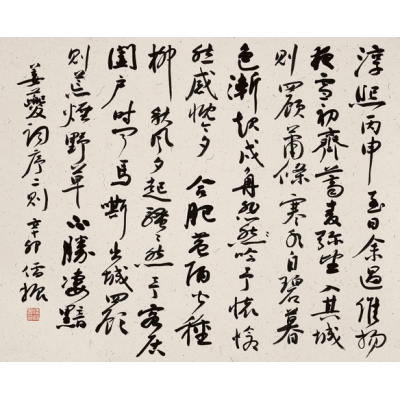 淳熙丙申至日余過維揚
夜雪初霽薺麥弥望入其城
則四顧蕭條寒水自碧暮
色漸起戍角悲吟予懷愴
然感慨今夕 合肥巷陌皆種
柳秋風夕起騷騷然予客居
闔戶時聞馬嘶出城四顧
則荒煙野草不勝淒黯
姜夔詞序二則 辛卯